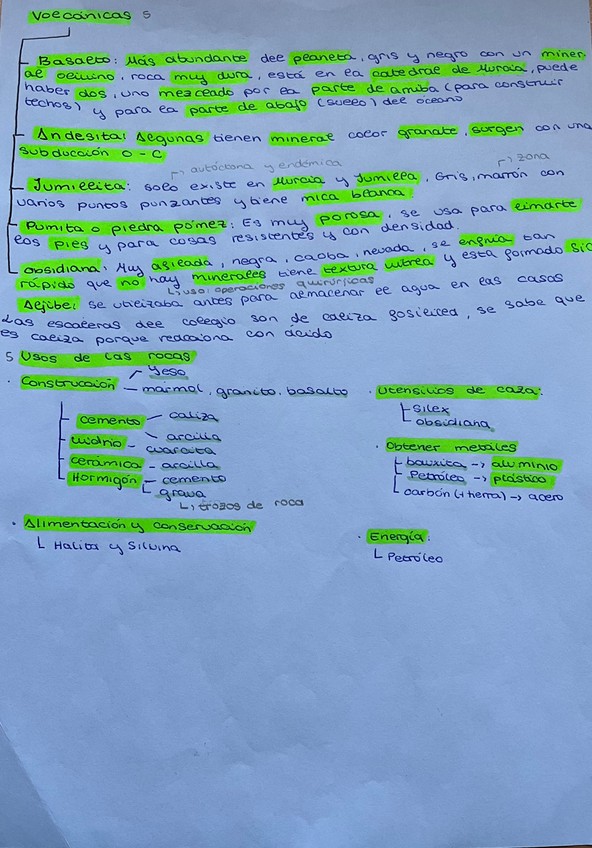 Volcánicas 5
Basalto: Más abundante del planeta, gris y negro con un miner
al olivino, roca muy dura, está en la catedral de Murcia, puede
haber dos, uno mezclado por la parte de arriba (para construir
techos) y para la parte de abajo (suelo) del océano
Andesita: Algunas tienen mineral color granate, surgen con una
subducción O-C
↱ autóctona y endémica ↱ zona
Jumillita: solo existe en Murcia y Jumilla, Gris, marrón con
varios puntos punzantes y tiene mica blanca
Pumita o piedra pómez: Es muy porosa, se usa para limarte
los pies y para cosas resistentes y con densidad.
obsidiana: Muy afilada, negra, caoba, nevada, se enfría tan
rápido que no hay minerales tiene textura vítrea y está formado Sic
↳ uso: operaciones quirúrjicas
Aljibe: se utilizaba antes para almacenar el agua en las casas
Las escaleras del colegio son de caliza fosilífera, se sabe que
es caliza porque reacciona con ácido
5 Usos de las rocas
Yeso
· Construcción — mármol, granito, basalto
cemento — caliza
arcilla
vidrio - cuarcita
cerámica - arcilla
Hormigón - cemento
grava
↳ trozos de roca
· Alimentación y conservación
Halita y Silvina
· Utensilios de caza:
silex
obsidiana
· Obtener metales
bauxita -> aluminio
Petróleo -> plástico
carbón (+tierra) -> acero
· Energía:
Petróleo